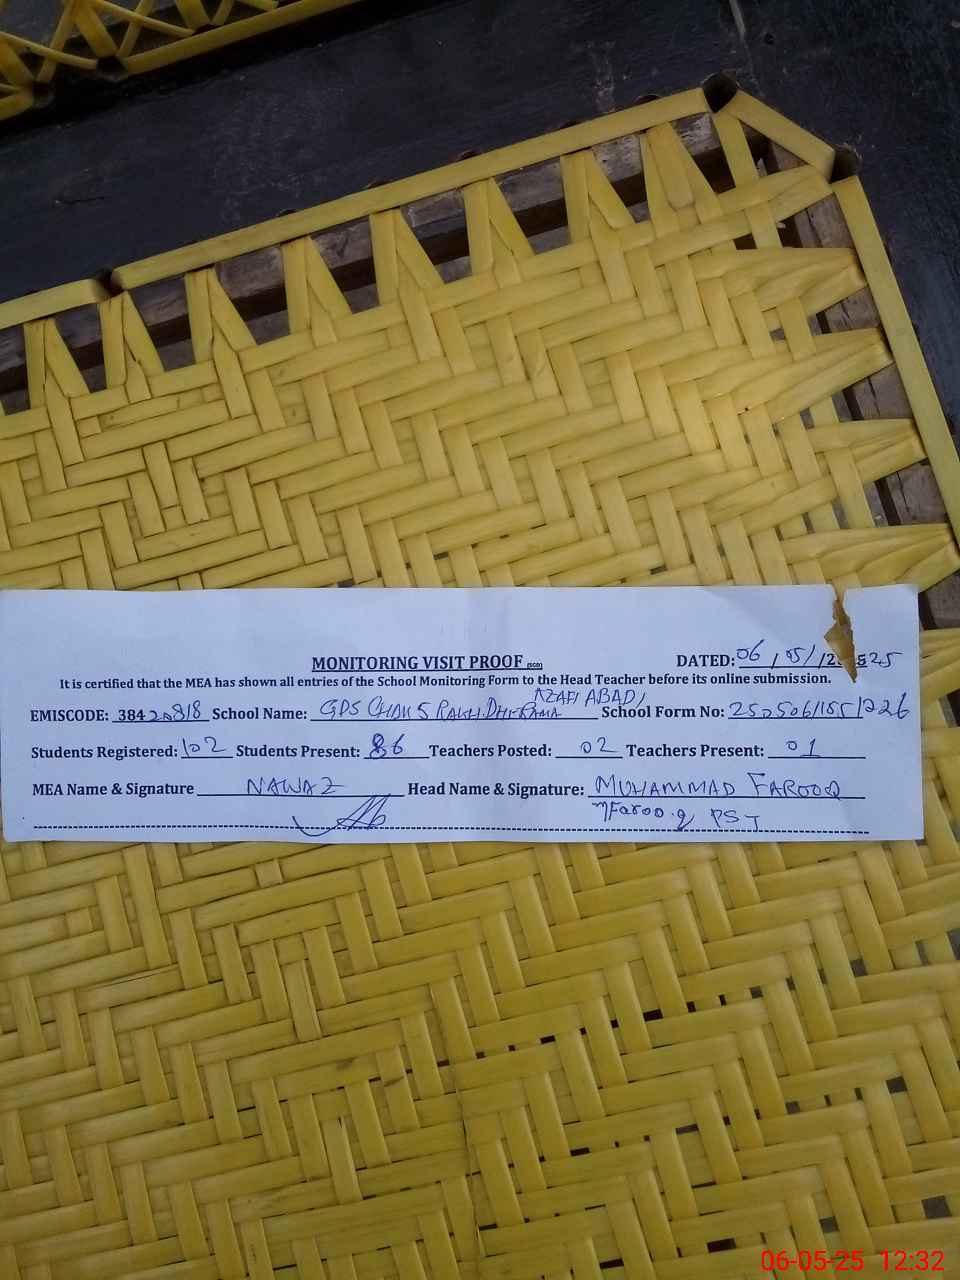 MONITORING VISIT PROOF
DATED: 06/05/2025
It is certified that the MEA has shown all entries of the School Monitoring Form to the Head Teacher before its online submission.
EMISCODE: 38420818 School Name: GPS CHAK 5 ABADI School Form No:
Students Registered: 102 Students Present: 86 Teachers Posted: 02 Teachers Present: 01
MEA Name & Signature NAWAZ Head Name & Signature: MUHAMMAD FAROOQ
MFarooq PST
06-05-25 12:32